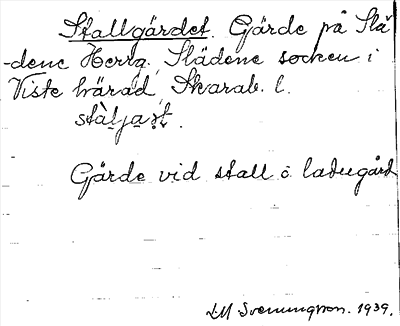 Stallgärdet. Gärde på Slä
-dene Herrg. Slädene socken i
Viste härad, Skarab. l.
Gärde vid stall o. ladugård
Svenungsson. 1939.